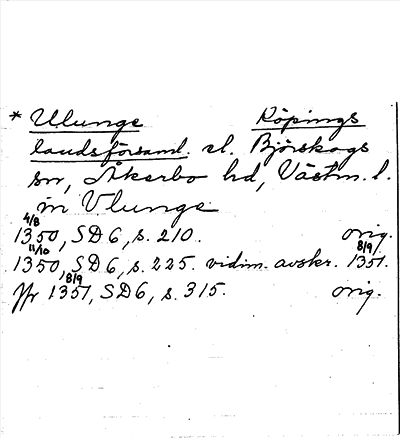 * Ulunge Köpings
landsförsaml. el. Björskogs
sn, Åkerbo hd, Västm. l.
in Vlunge
4/8
1350, SD 6, s. 210. orig.
11/10 8/9
1350, SD 6, s. 225. vidim. avskr. 1351.
8/9
Jfr 1351, SD 6, s. 315. orig.